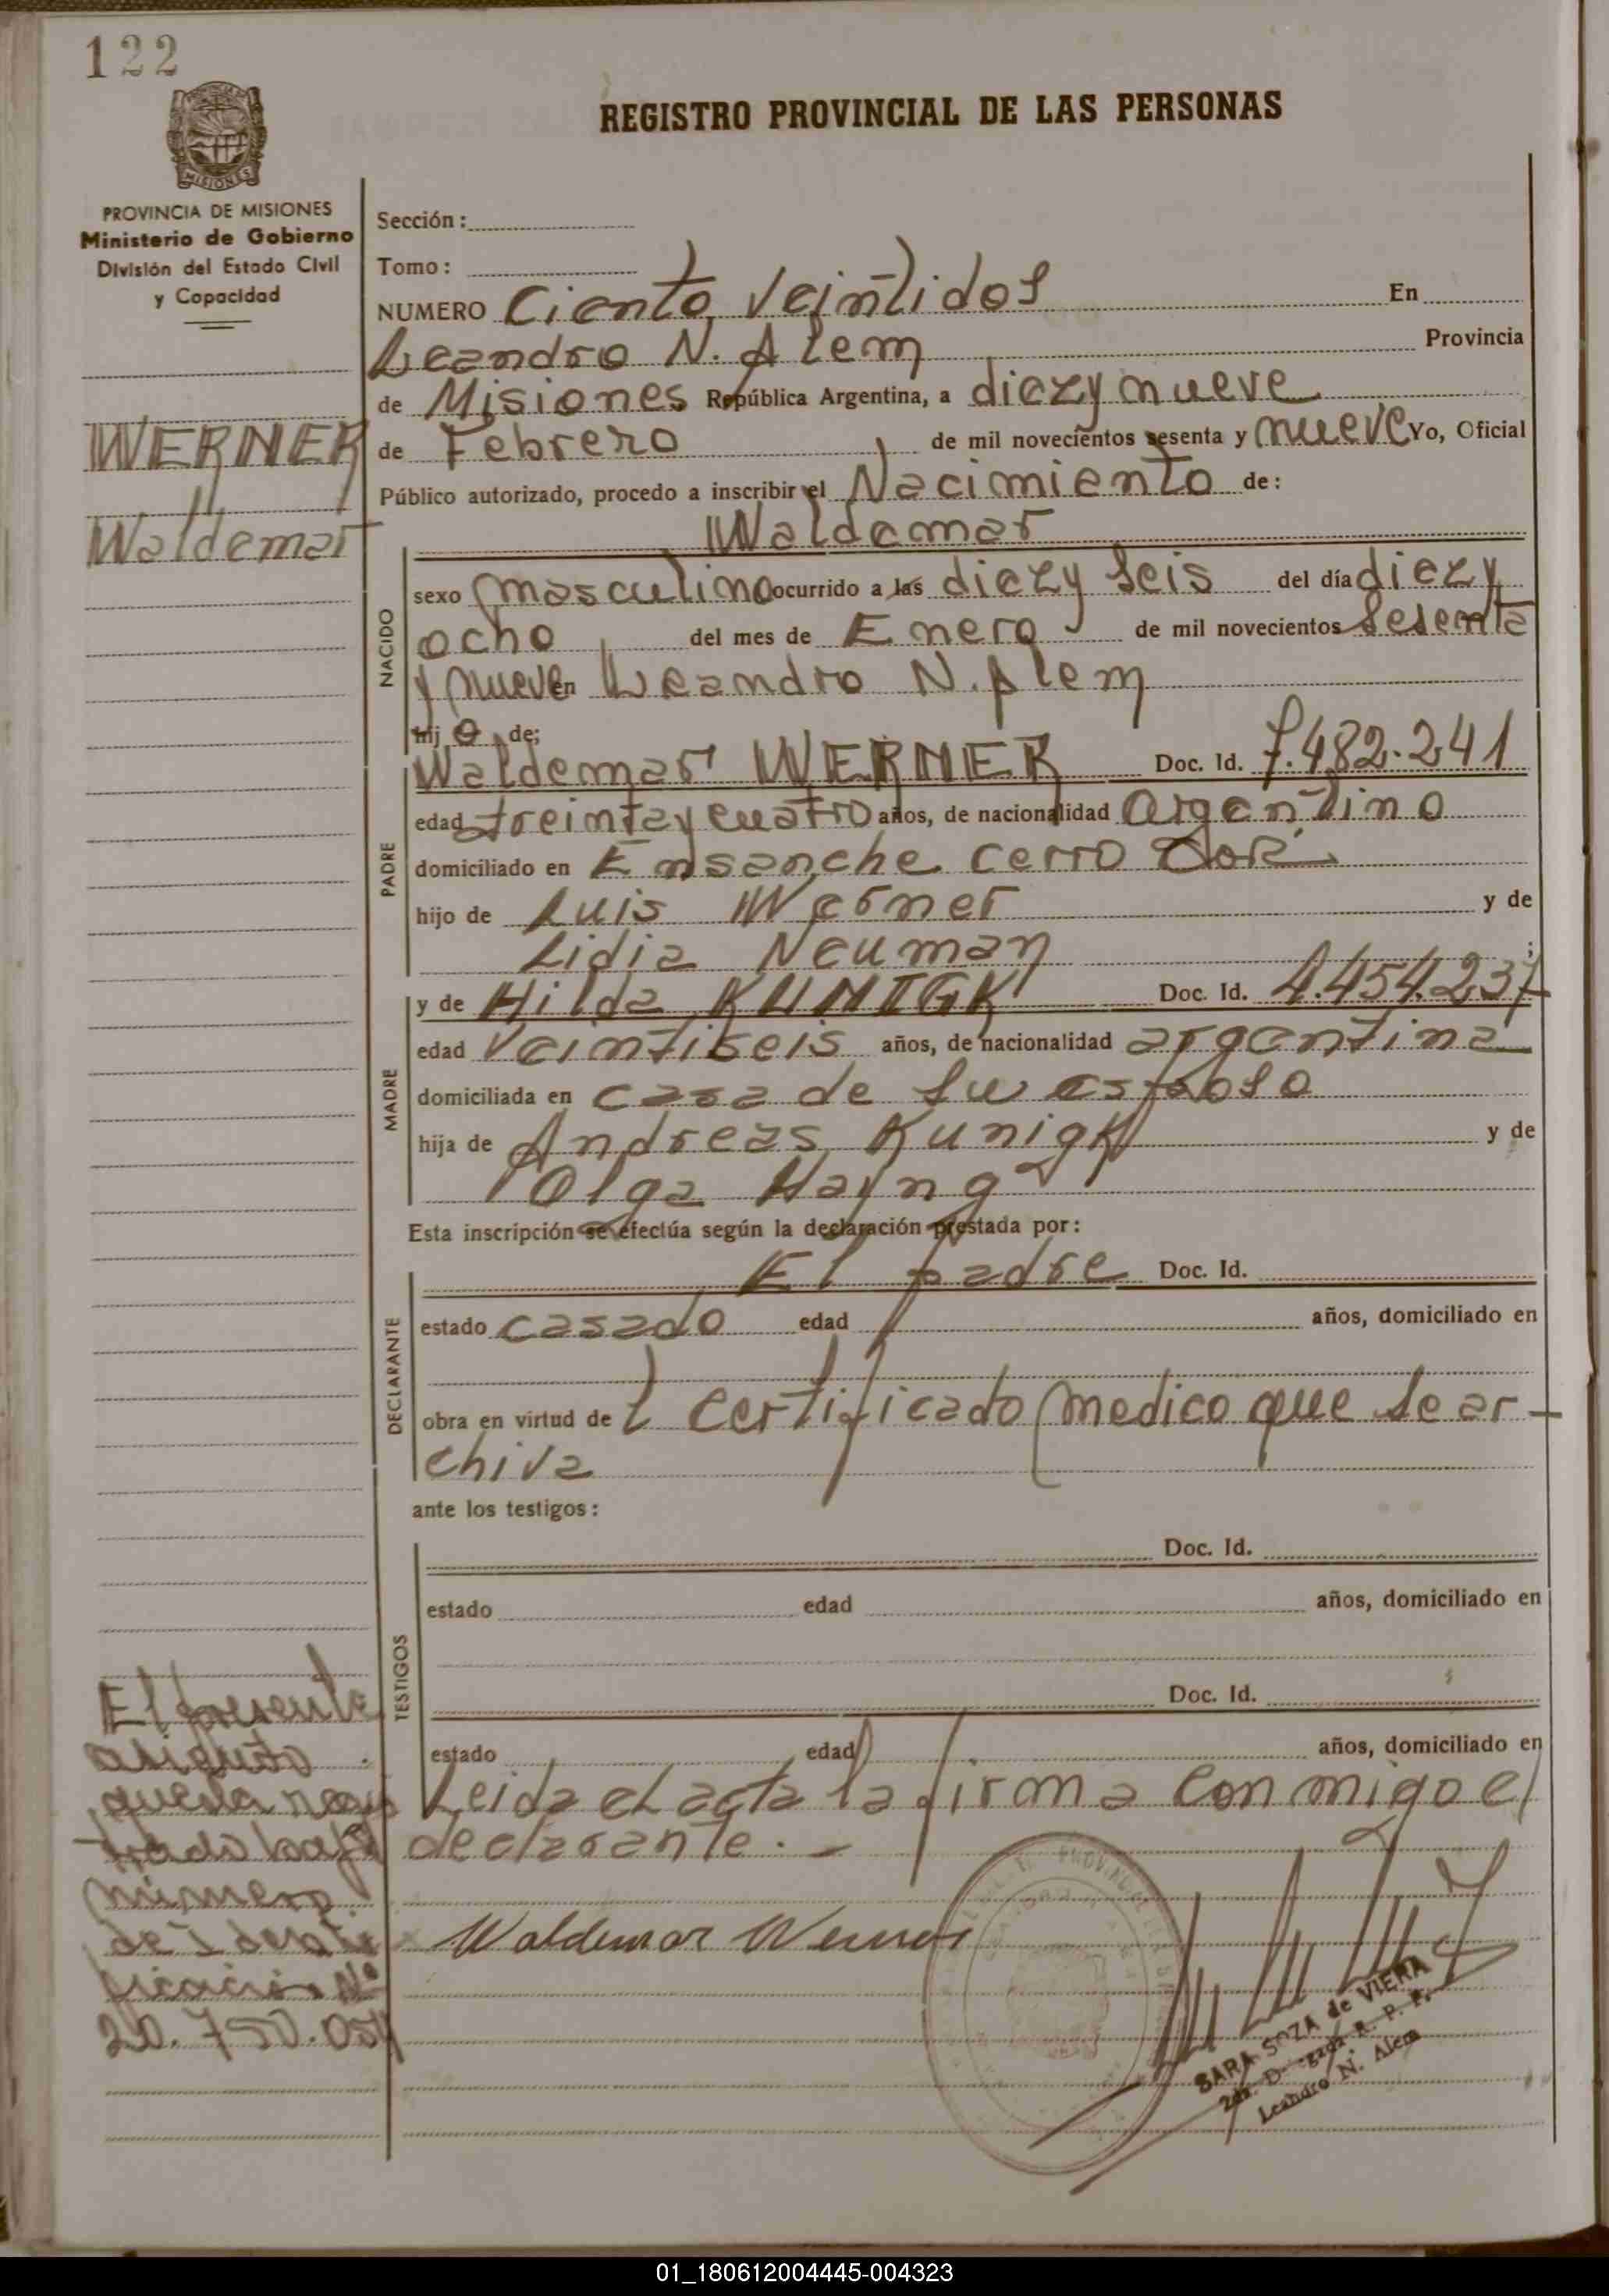 122
REGISTRO PROVINCIAL DE LAS PERSONAS
MISIONES
PROVINCIA DE MISIONES
Ministerio de Gobierno
División del Estado Civil
y Capacidad
WERNER
Waldemar
Sección:
Tomo:
NUMERO Ciento Veintidos En
Leandro N. Alem Provincia
de Misiones República Argentina, a diezy nueve
de Febrero de mil novecientos sesenta y nueve Yo, Oficial
Público autorizado, procedo a inscribir el Nacimiento de:
Waldemar
NACIDO
sexo masculino ocurrido a las diezy seis del día diezy
ocho del mes de Enero de mil novecientos Sesenta
y nueve en Leandro N. Alem
hijo de;
PADRE
Waldemar WERNER Doc. Id. 7.482.241
edad treintaycuatro años, de nacionalidad argentino
domiciliado en Ensanche cerro Corá
hijo de Luis Werner y de
Lidia Neuman;
MADRE
y de Hilda KUNIGK Doc. Id. 4.454.237
edad Veintiseis años, de nacionalidad argentina
domiciliada en casa de su esposo
hija de Andreas Kunigk y de
Olga Hayng
Esta inscripción se efectúa según la declaración prestada por:
DECLARANTE
El padre Doc. Id.
estado casado edad años, domiciliado en
obra en virtud de l Certificado medico que se ar-
chiva
ante los testigos:
TESTIGOS
Doc. Id.
estado edad años, domiciliado en
Doc. Id.
estado edad años, domiciliado en
Leida el acta la firma conmigo el
declarante.-
Waldemar Werner
SARA SOZA de VIERA
Leandro N. Alem
El presente
asiento
queda regis
trado bajo
número
de Identi
ficación Nº
01_180612004445-004323